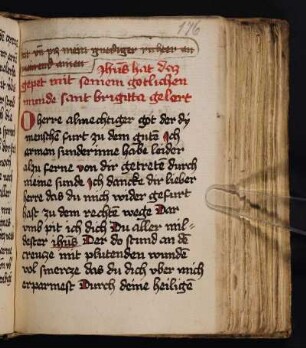 176
mir vn piß mein gnediger richter an
meinem end amen Jhūs hat dis
gepet mit seinem gotlichen
munde sant brigitta gelert
O herre almechtiger got der dy
menschen furt zu dem gutē Ich
armen sunderinne habe laider
alzu ferne von dir getretē durch
meine sunde Ich dancke dir lieber
herre das du mich wider gefurt
hast zu dem rechten wege Dar
vmb pit ich dich Du aller mil-
dester ihūs Der do stund an dē
creuze mit plutenden wunden
vol smercze das du dich vber mich
erparmest Durch deine heiligē